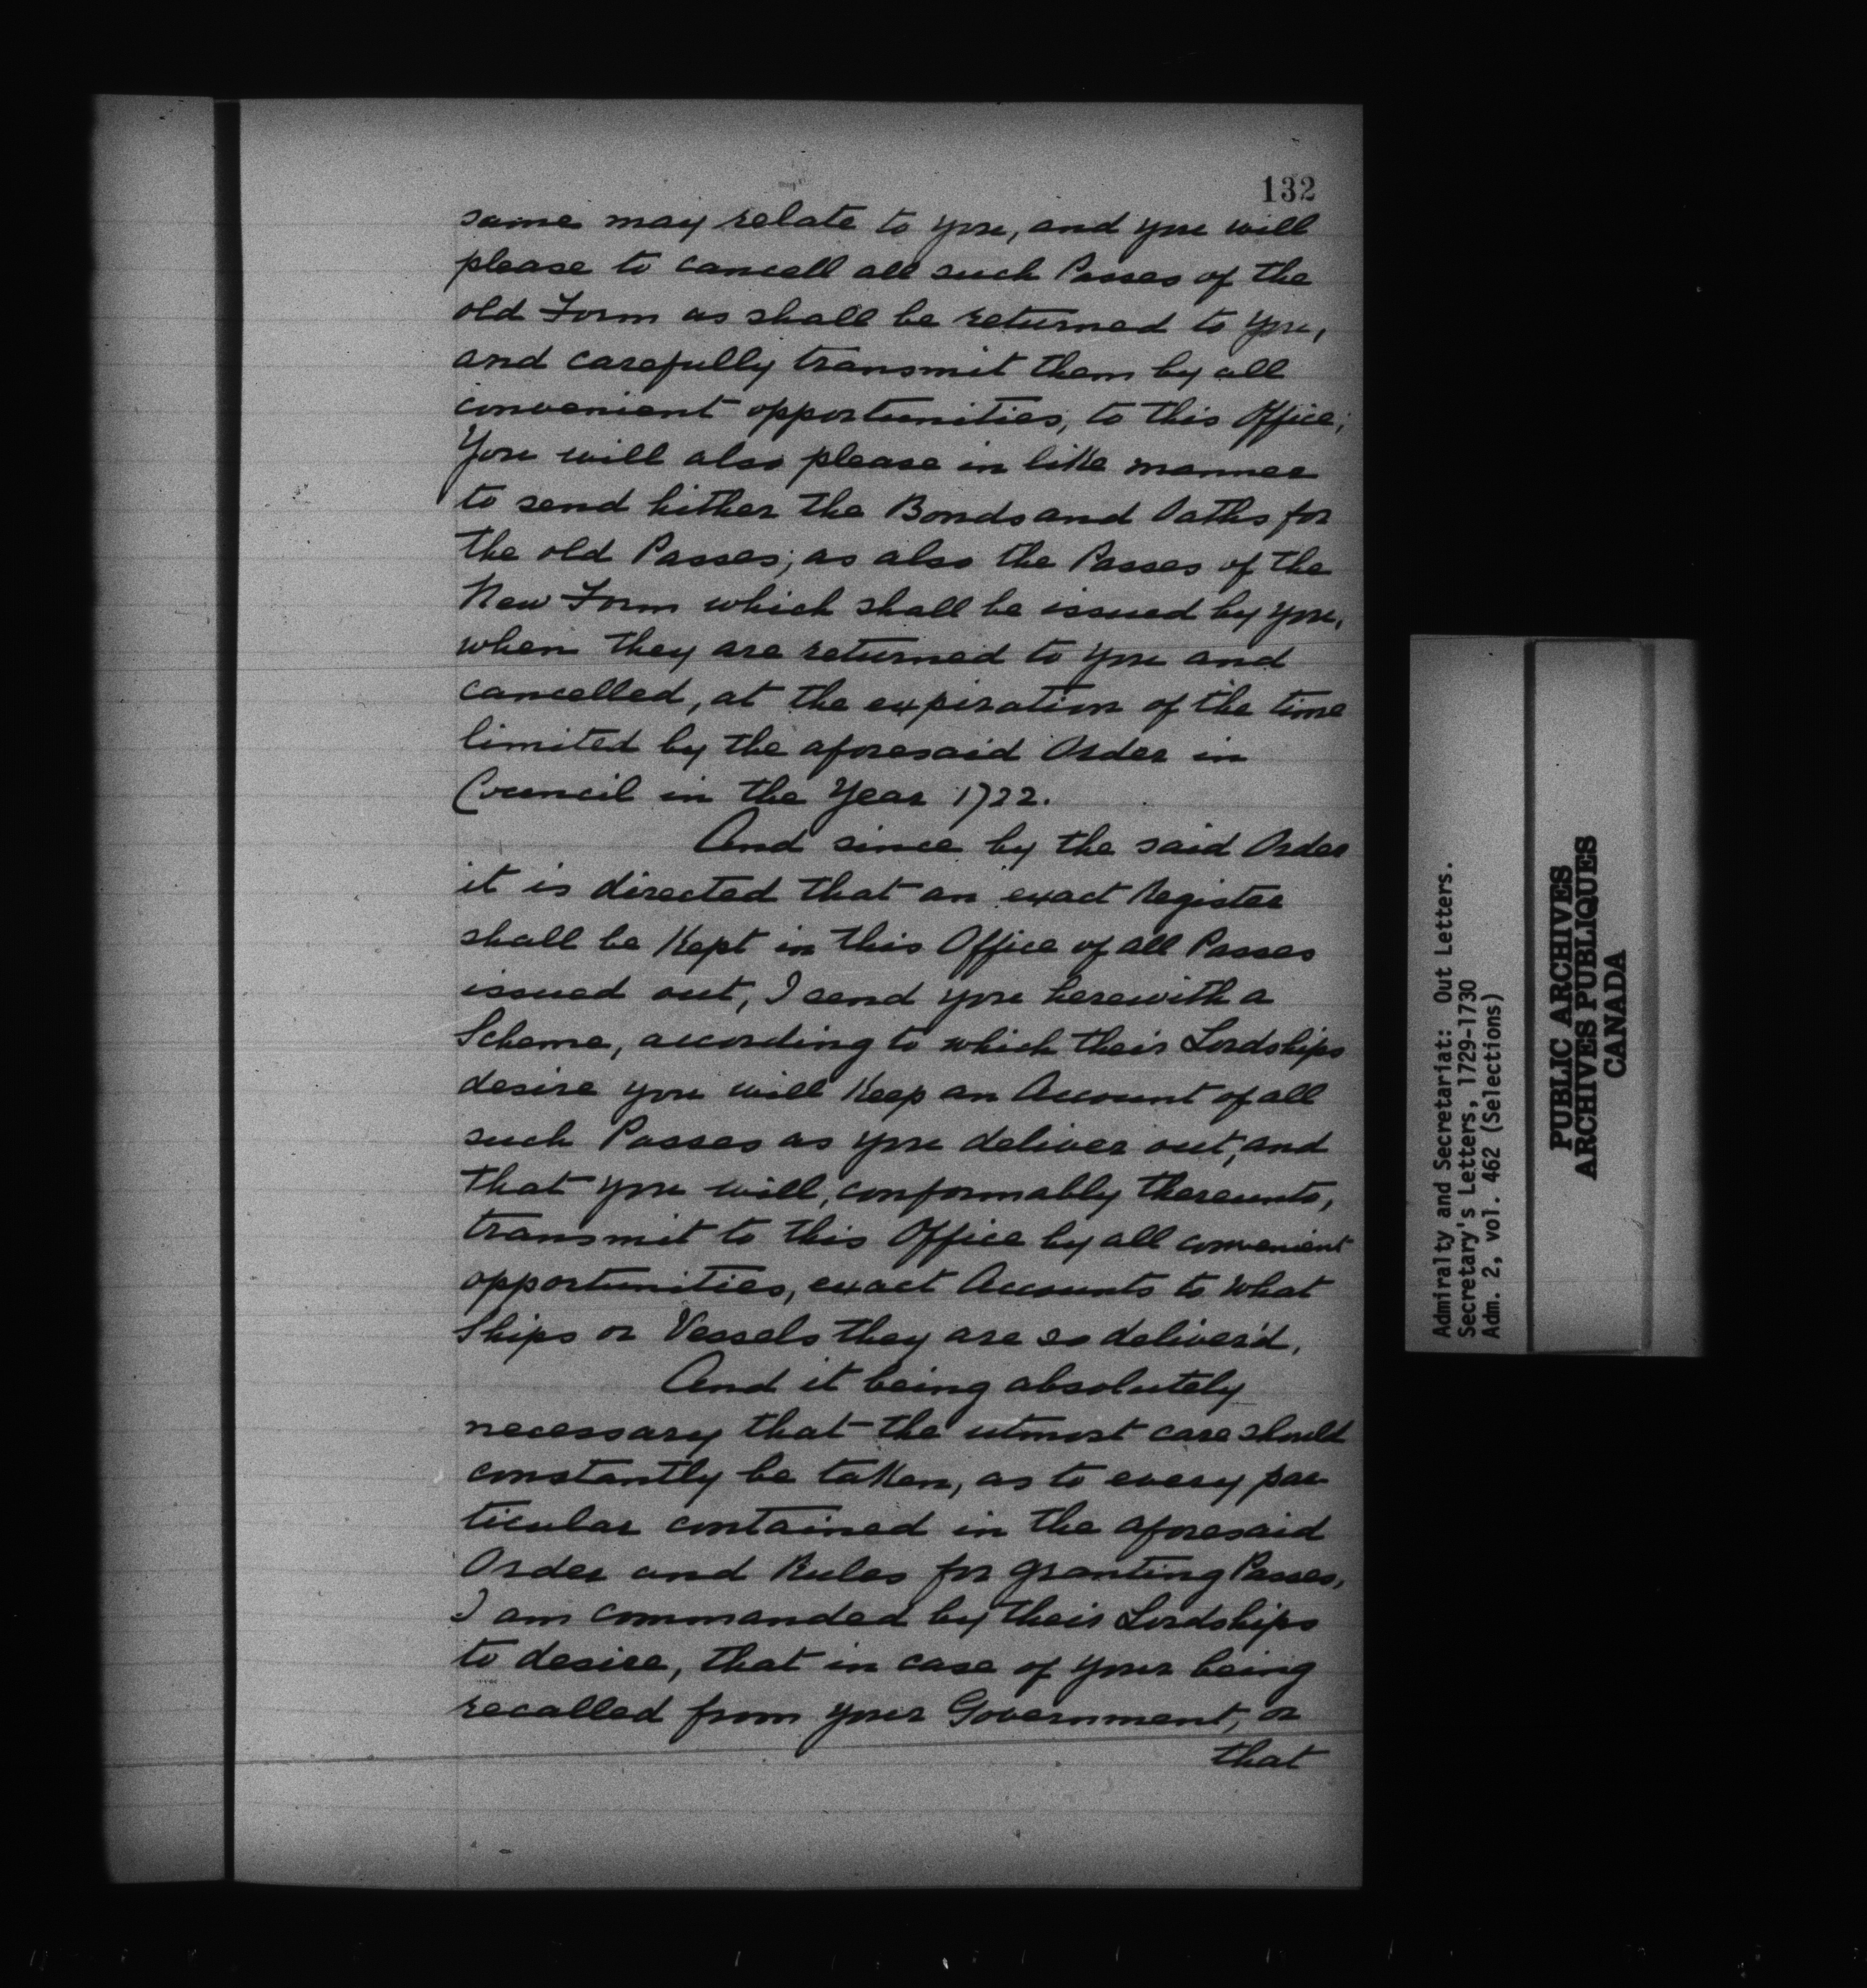 132
same may relate to you, and you will
please to cancell all such Passes of the
old Form as shall be returned to you,
and carefully transmit them by all
convenient opportunities, to this Office;
You will also please in like manner
to send hither the Bonds and Oaths for
the old Passes; as also the Passes of the
New Form which shall be issued by you,
when they are returned to you and
cancelled, at the expiration of the time
limited by the aforesaid Order in
Council in the Year 1722.
And since by the said Order
it is directed that an exact Register
shall be Kept in this Office of all Passes
issued out, I send you herewith a
Scheme, according to which their Lordships
desire you will Keep an Account of all
such Passes as you deliver out, and
that you will, conformably thereunto,
transmit to this Office by all convenient
opportunities, exact Accounts to what
Ships or Vessels they are so deliver'd.
And it being absolutely
necessary that the utmost care should
constantly be taken, as to every par
ticular contained in the aforesaid
Order and Rules for granting Passes,
I am commanded by their Lordships
to desire, that in case of your being
recalled from your Government, or
that
Admiralty and Secretariat: Out Letters.
Secretary's Letters, 1729-1730
Adm. 2, vol. 462 (Selections)
PUBLIC ARCHIVES
ARCHIVES PUBLIQUES
CANADA